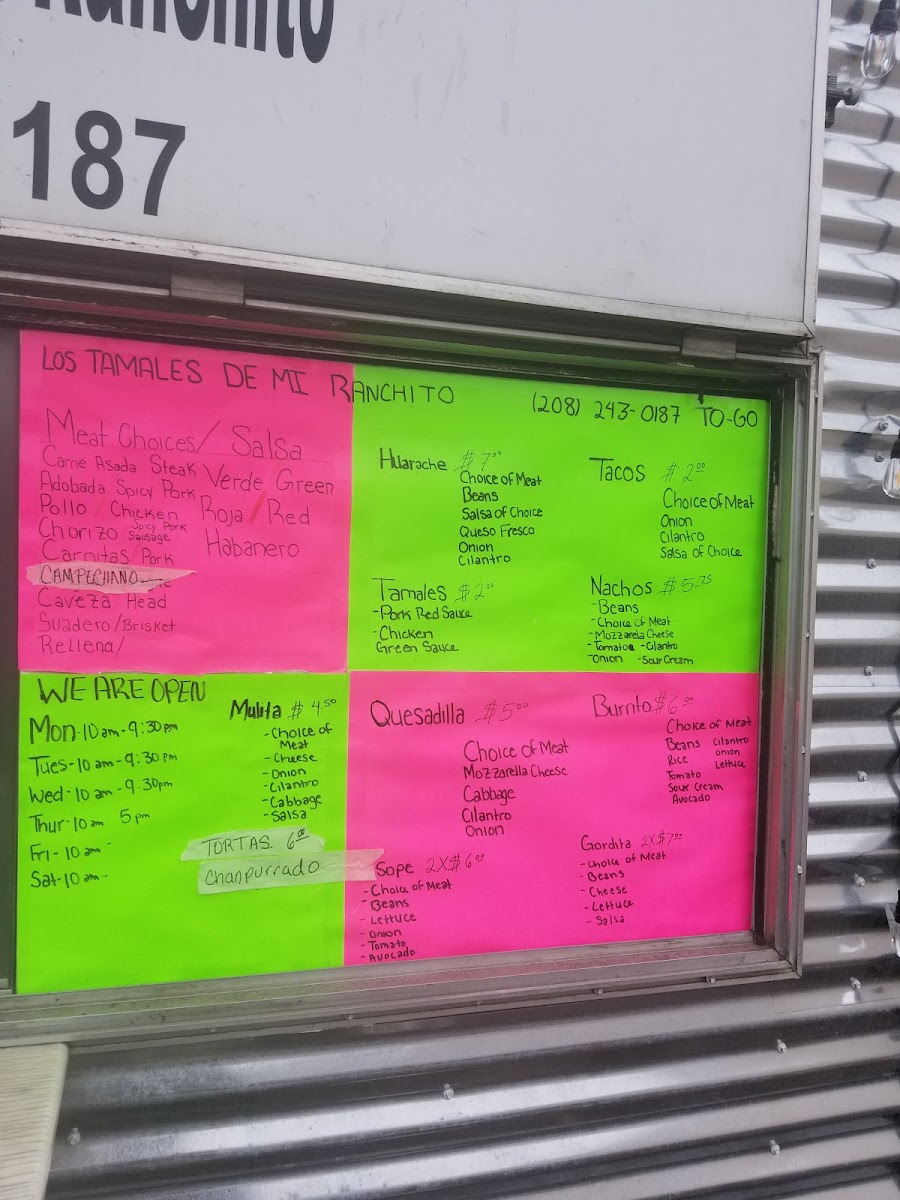 Ranchito
187
LOS TAMALES DE MI RANCHITO
(208) 243-0187 TO-GO
Meat Choices/ Salsa
Carne Asada Steak
Adobada Spicy Pork
Pollo / Chicken
Chorizo Spicy Pork Sausage
Carnitas/Pork
CAMPECHANO
Caveza Head
Suadero/Brisket
Rellena/
Verde/Green
Roja/Red
Habanero
Huarache $7.00
Choice of Meat
Beans
Salsa of Choice
Queso Fresco
Onion
Cilantro
Tacos $2.00
Choice of Meat
Onion
Cilantro
Salsa of Choice
Tamales $2.00
-Pork Red Sauce
-Chicken
Green Sauce
Nachos $5.75
-Beans
-Choice of Meat
-Mozzarela Cheese
-Tomatoe -Cilantro
-Onion -Sour Cream
WE ARE OPEN
Mon-10am-9:30pm
Tues-10am-9:30pm
Wed-10am-9:30pm
Thur-10am 5pm
Fri-10am-
Sat-10am-
Mulita $4.50
-Choice of
Meat
-Cheese
-Onion
-Cilantro
-Cabbage
-Salsa
TORTAS 6.00
Chanpurrado
Quesadilla $5.00
Choice of Meat
Mozzarella Cheese
Cabbage
Cilantro
Onion
Burrito $6.00
Choice of Meat
Beans Cilantro
Rice onion
Tomato Lettuce
Sour Cream
Avocado
Sope 2X$6.00
-Choice of Meat
-Beans
-Lettuce
-Onion
-Tomato
-Avocado
Gordita 2X$7.00
-Choice of Meat
-Beans
-Cheese
-Lettuce
-Salsa